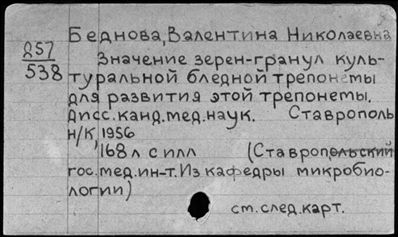 Беднова, Валентина Николаевна
857
538
Значение зерен-гранул куль-
туральной бледной трепонемы
для развития этой трепонемы.
Дисс. канд. мед. наук. Ставрополь
н/К, 1956
168 л с илл (Ставропольский
гос. мед. ин-т. Из кафедры микробио-
логии)
см. след. карт.